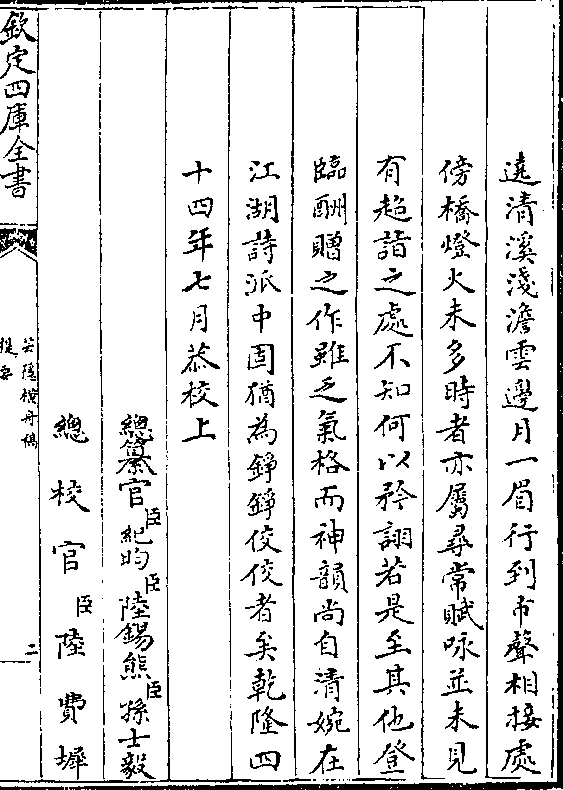 遶清溪淺澹雲邊月一眉行到市聲相接處
傍橋燈火未多時者亦屬尋常賦咏並未見
有超詣之處不知何以矜詡若是至其他登
臨酬贈之作雖乏氣格而神韻尚自清婉在
江湖詩派中固猶為錚錚佼佼者矣乾隆四
十四年七月恭校上
總纂官臣紀昀臣陸錫熊臣孫士毅
總校官臣陸費墀
欽定四庫全書
芸隱橫舟稿
提要
二